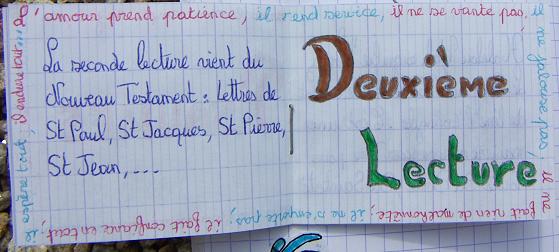 L'amour prend patience, il rend service, il ne se vante pas, il ne jalouse pas, il ne
fait rien de malhonnête; il ne s'emporte pas; il fait confiance en tout, il
espère tout, il endure tout...
La seconde lecture vient du
Nouveau Testament : Lettres de
St Paul, St Jacques, St Pierre,
St Jean, ...
Deuxième
Lecture